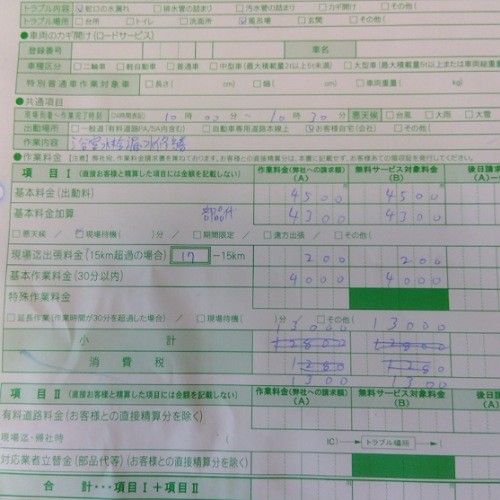 トラブル内容 ☑蛇口の水漏れ □排水管の詰まり □汚水管の詰まり □カギ開け □その他(
トラブル場所 □台所 □トイレ □洗面所 ☑風呂場 □玄関 □その他(
●車両のカギ開け(ロードサービス)
登録番号 車名
車種区分 □二輪車 □軽自動車 □普通車 □中型車(最大積載量
特別普通車作業対象車 □長さ( cm) □幅( cm) □車両重量( kg)
●共通項目
現場到着〜作業完了時刻 [24時間表記] 10時00分〜10時30分 悪天候 □台風 □大雨 □大雪
出動場所 □一般道(有料道路PA/SA内含む) □自動車専用道路本線上 ☑お客様自宅(会社) □その他(
作業内容 浴室水栓漏水修繕
●作業料金【注意】弊社宛、作業料金請求書を兼ねております。お客様との直接精算分は、本書に記載せず、お客様あての領収証を発行してください。
項目Ⅰ(直接お客様と精算した項目には金額を記載しない) 作業料金(弊社への請求額)(A) 無料サービス対象料金(B) 後日請求(A)−
基本料金(出動料) 4500 4500
基本料金加算 部品代 4300 4300
□悪天候 / □現場待機( )分 / □期間限定 / □遠方出張 / □その他(
現場迄出張料金(15km超過の場合) 17 −15km 200 200
基本作業料金(30分以内) 4000 4000
特殊作業料金
□延長作業(作業時間が30分を超過した場合) / □現場待機( )分 □その他(
13000 13000
小計 12800 12800
消費税 1280 1280
1300 1300
項目Ⅱ(直接お客様と精算した項目には金額を記載しない) 作業料金(弊社への請求額)(A) 無料サービス対象料金(B) 後日請求(A)
有料道路料金(お客様との直接精算分を除く)
現場迄・帰社時 ( IC)─トラブル場所─(
対応業者立替金(部品代等)(お客様との直接精算分を除く)
合計・・・項目Ⅰ+項目Ⅱ